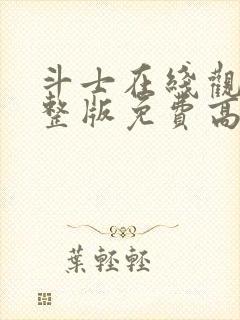 斗士在綫觀
整版免費高
葉輕輕